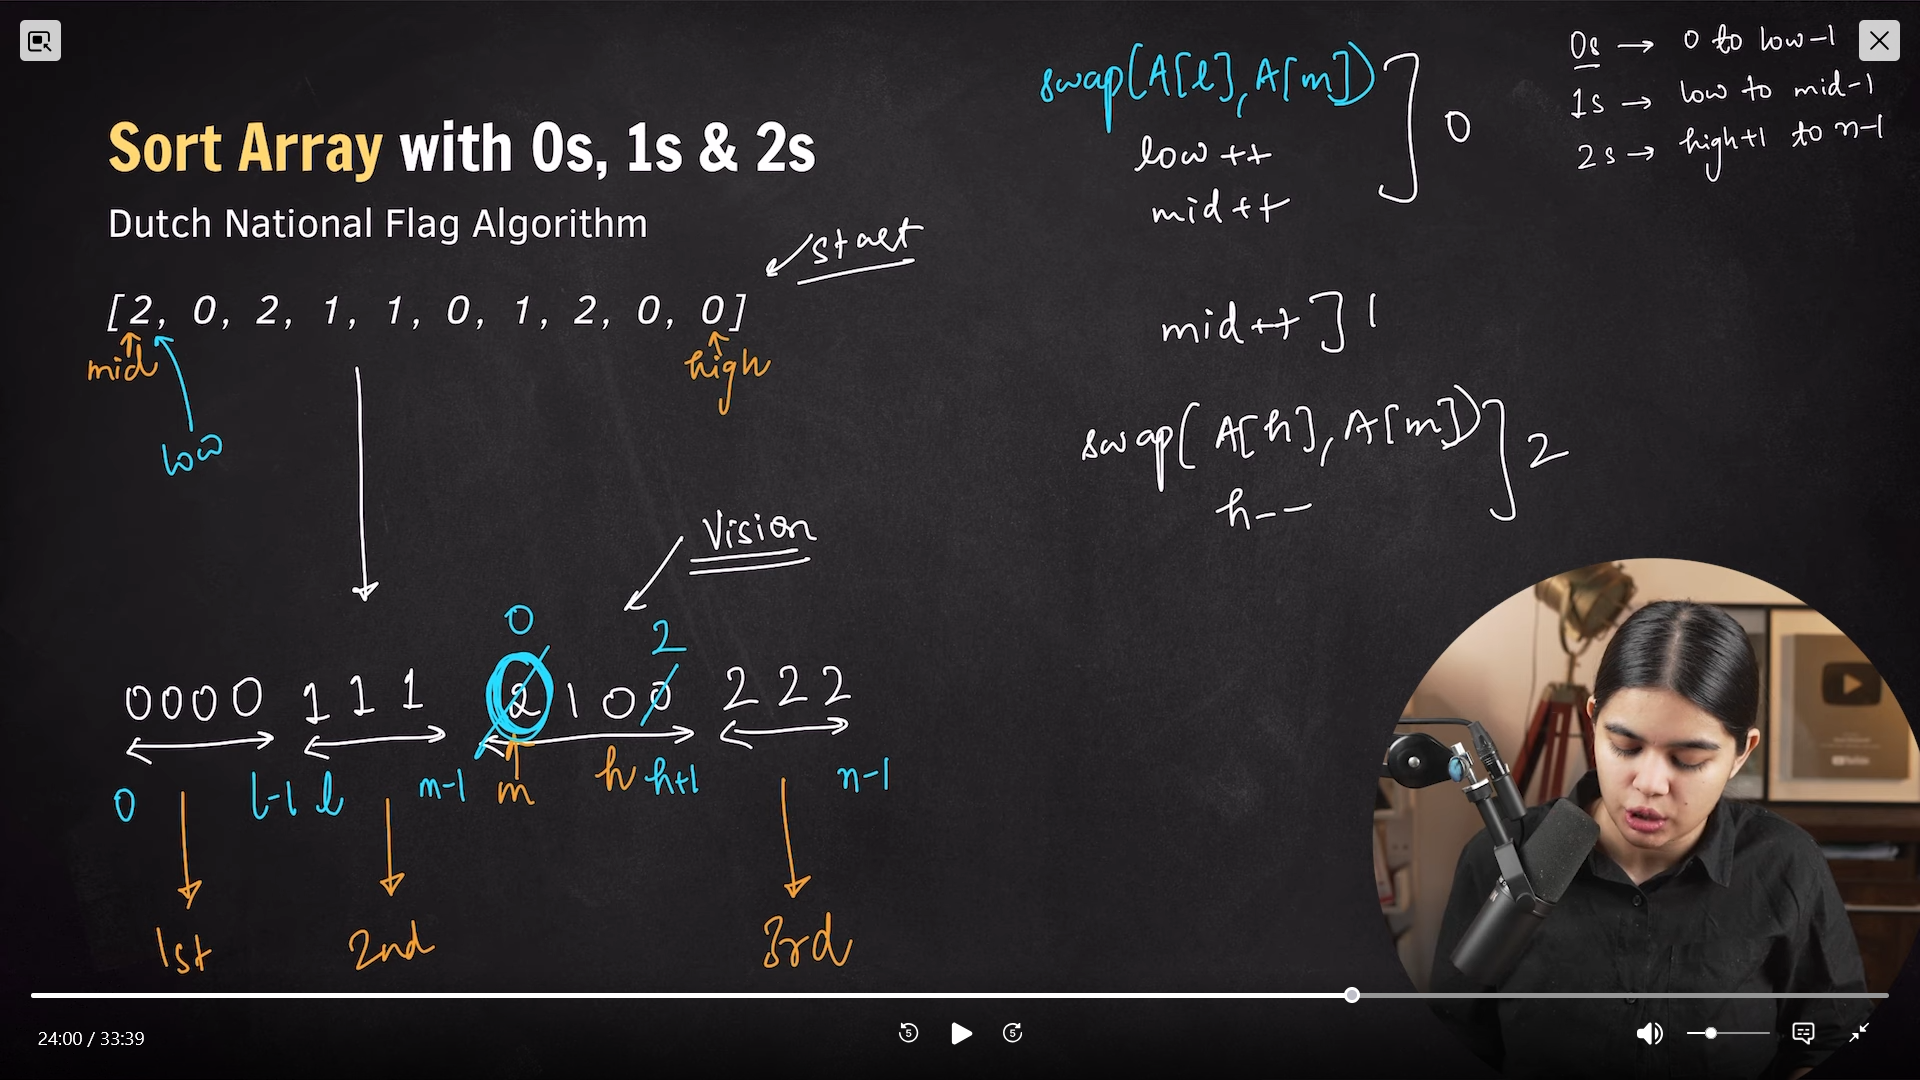 Sort Array with 0s, 1s & 2s
Dutch National Flag Algorithm
start
[2, 0, 2, 1, 1, 0, 1, 2, 0, 0]
mid
high
low
Vision
0
2
0000 111 2100 222
0 l-1 l m-1 m h h+1 n-1
1st 2nd 3rd
swap(A[l], A[m])
low ++
mid ++
] 0
mid++ ] 1
swap(A[h], A[m])
h--
] 2
0s → 0 to low-1
1s → low to mid-1
2s → high+1 to n-1
24:00 / 33:39
5 5